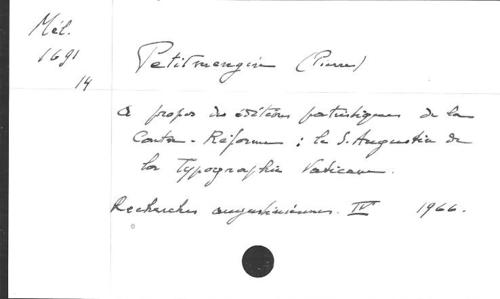 Mél.
1691
14
Petitmengin (Pierre)
A propos des éditions patristiques de la
Contre-Réforme : le S. Augustin de
la Typographie Vaticane.
Recherches augustiniennes. IV 1966.